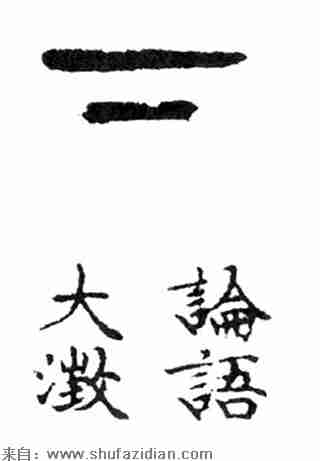 下
論語
大澂
来自：www.shufazidian.com